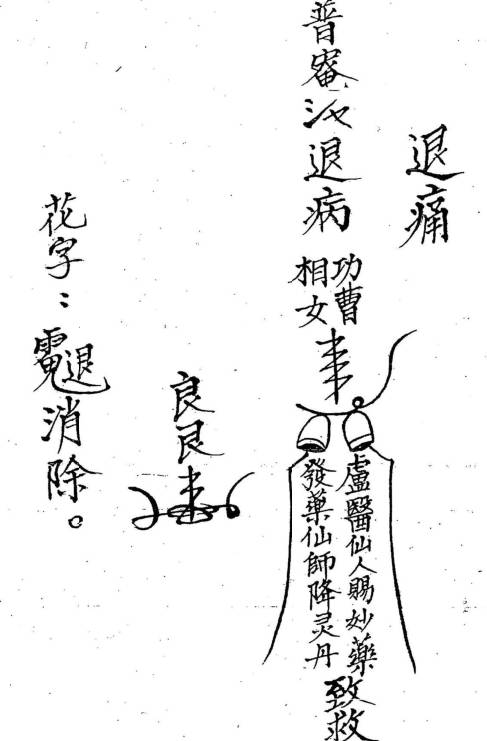 退痛
普審
退病
功曹
相女
盧醫仙人賜妙藥
發藥仙師降灵丹
致救
良艮
花字：
退消除。